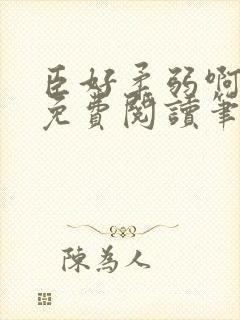 臣好柔弱啊
免費閱讀筆
陳為人